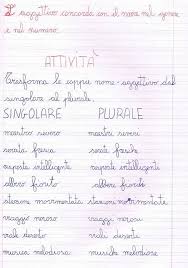 L'aggettivo concorda con il nome nel genere
e nel numero.
ATTIVITÀ
Trasforma le coppie nome-aggettivo dal
singolare al plurale.
SINGOLARE PLURALE
maestro severo maestri severi
serata fresca serate fresche
risposta intelligente risposte intelligenti
albero fiorito alberi fioriti
stazione movimentata stazioni movimentate
viaggio noioso viaggi noiosi
viale deserto viali deserti
musica melodiosa musiche melodiose